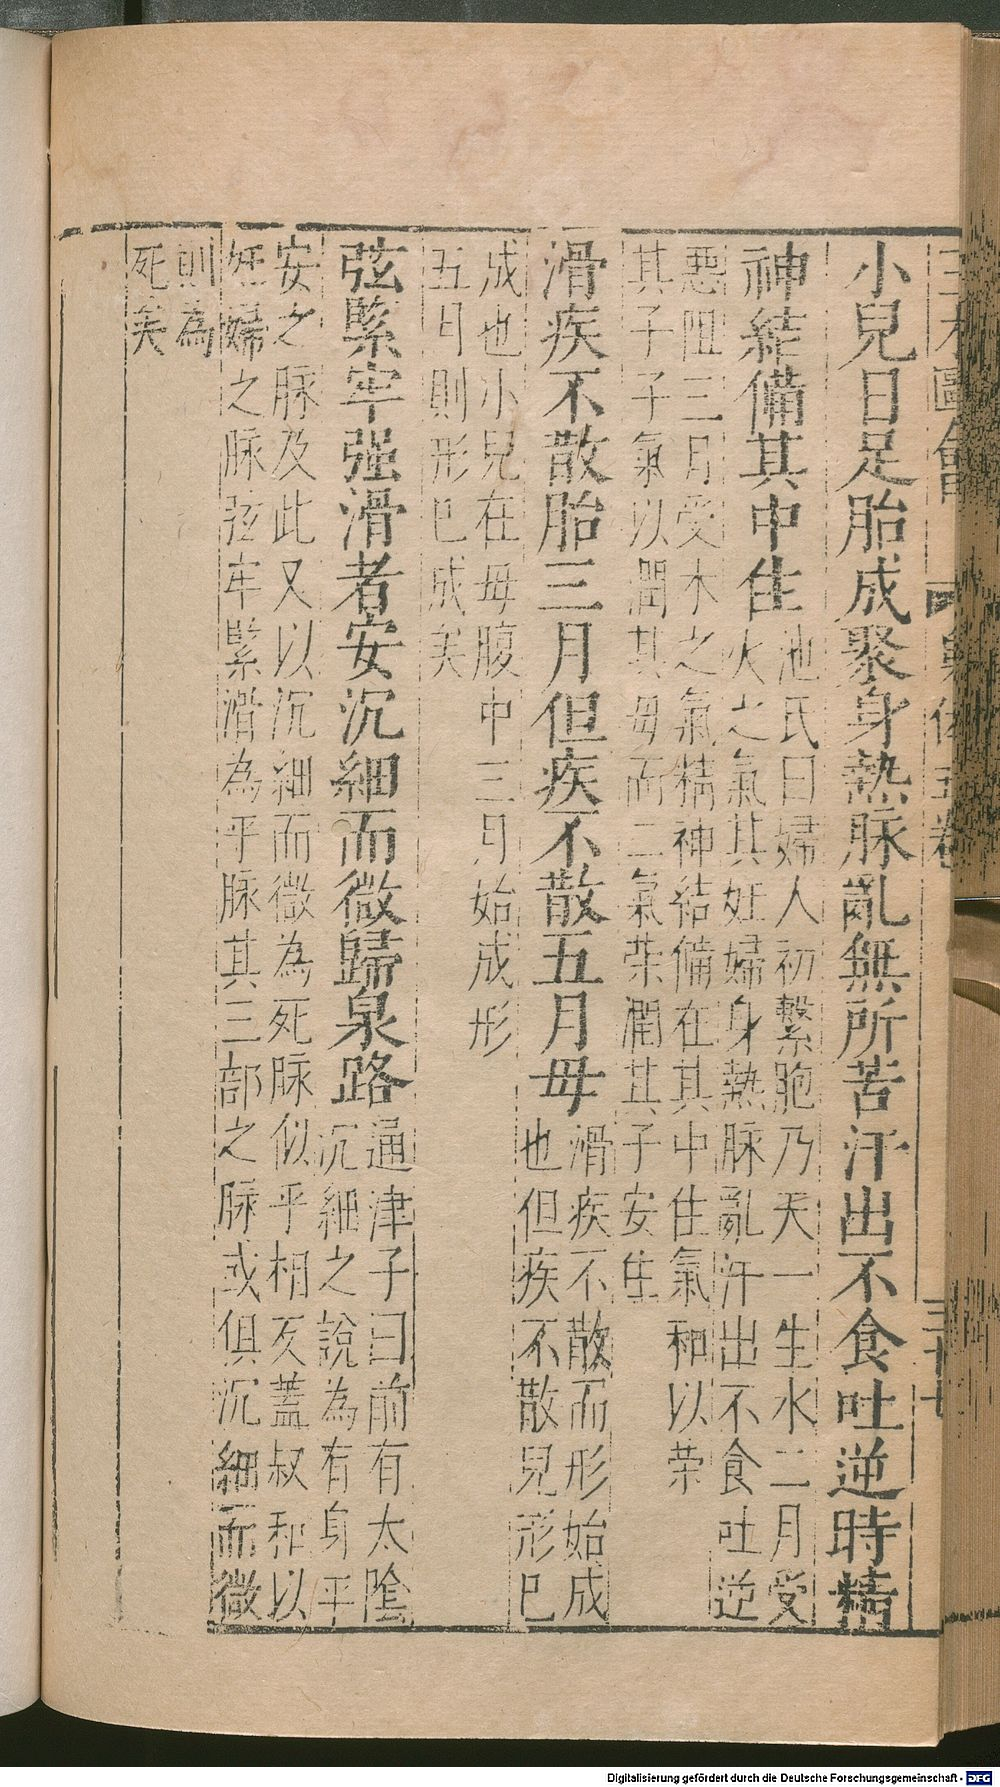 小兒日足胎成聚身熱脉亂無所苦汗出不食吐逆時精
神結備其中住
池氏曰婦人初繫胞乃天一生水二月受
火之氣其妊婦身熱脉亂汗出不食吐逆
惡阻三月受木之氣精神結備在其中住氣和以荣
其子子氣以潤其毋而二氣荣潤其子安住
滑疾不散胎三月但疾不散五月毋
滑疾不散而形始成
也但疾不散兒形已
成也小兒在毋腹中三月始成形
五月則形已成矣
弦緊牢强滑者安沉細而微歸泉路
通津子曰前有太陰
沉細之說為有身平
安之脉及此又以沉細而微為死脉似乎相反蓋叔和以
妊婦之脉弦牢緊滑為平脉其三部之脉或俱沉細而微
則為
死矣
三才圖會
身體五卷
三十七
Digitalisierung gefördert durch die Deutsche Forschungsgemeinschaft - DFG